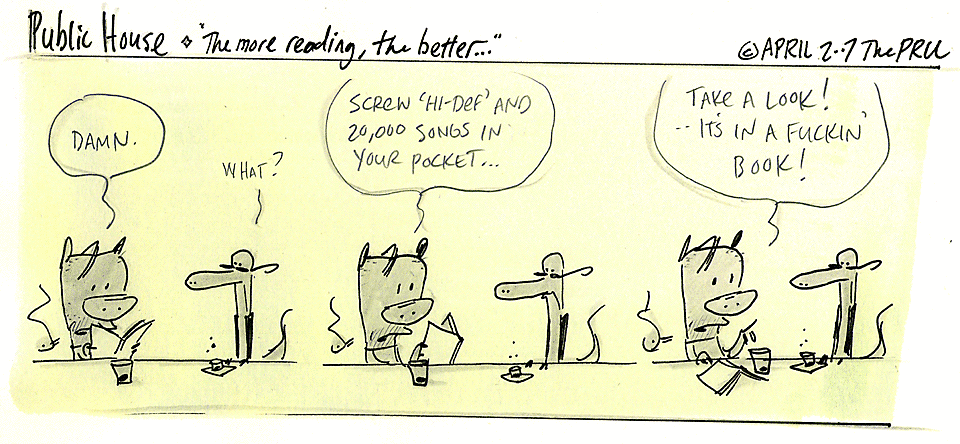 Public House ⋄ "The more reading, the better..."
© APRIL 2..7 The PRU
DAMN.
WHAT?
SCREW 'HI-DEF' AND
20,000 SONGS IN
YOUR POCKET...
TAKE A LOOK!
-- IT'S IN A FUCKIN'
BOOK!